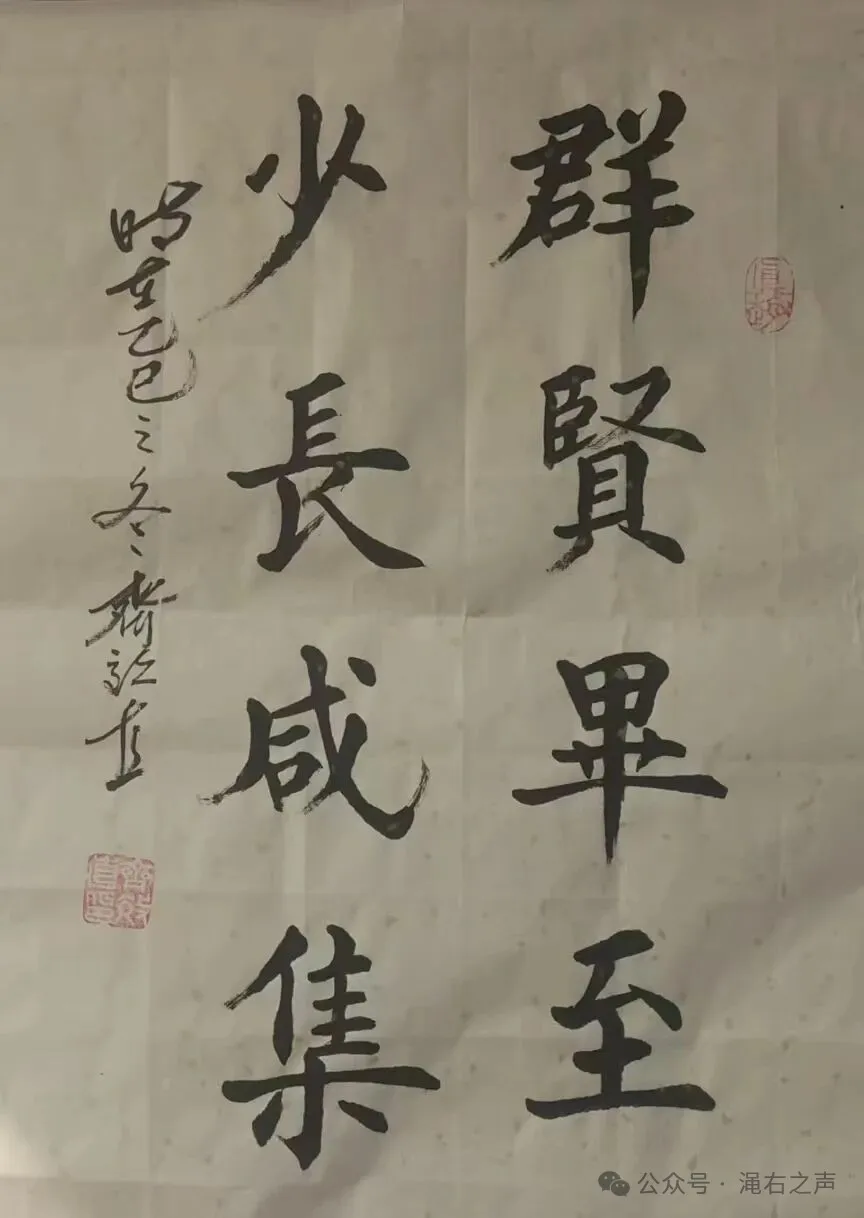 群賢畢至
少長咸集
時在乙巳之冬齊
公众号·渑右之声